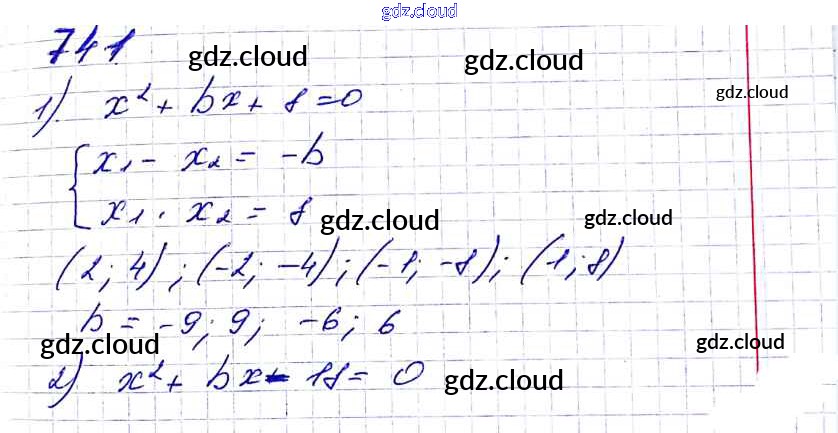 gdz.cloud
741.
gdz.cloud gdz.cloud
1). x² + bx + 8 = 0 gdz.cloud
{ x₁ - x₂ = -b
x₁ · x₂ = 8 gdz.cloud gdz.cloud
(2; 4); (-2; -4); (-1; -8); (1; 8)
b = -9; 9; -6; 6
gdz.cloud gdz.cloud
2) x² + bx - 18 = 0 gdz.cloud